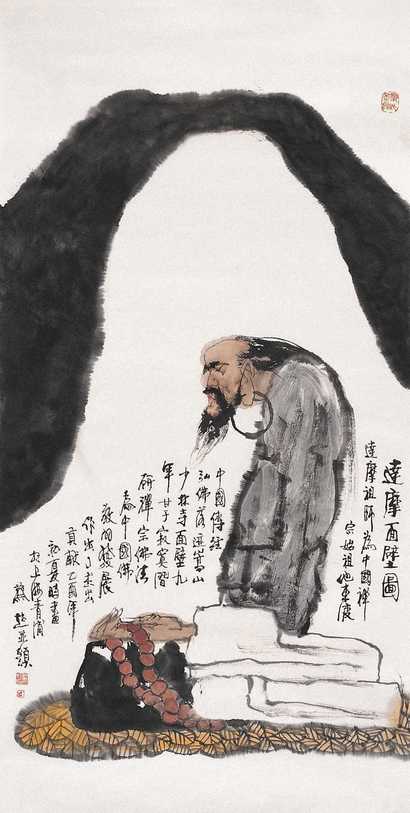 達摩面壁圖
達摩祖師為中國禪
宗始祖他東渡
中國傳經
弘佛落迹嵩山
少林寺面壁九
年甘于寂寞潛
研禪宗佛法
為中國佛
教的發展
作出了杰出
貢獻乙酉年
初夏時畫
於上海青浦
并頌